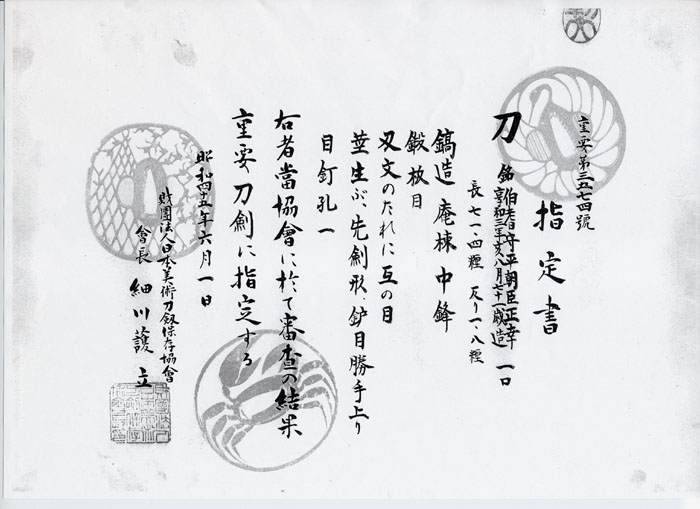 重要第三五七四號
指定書
刀 銘 伯耆守平朝臣正幸 一口
享和三年亥八月七十一歳造
長七一・四糎 反り一・八糎
鎬造 庵棟 中鋒
鍛 板目
刃文 のたれに互の目
茎 生ぶ、先剣形、鑢目勝手上り
目釘孔一
右者當協會に於て審査の結果
重要刀劍に指定する
昭和四十五年六月一日
財團法人日本美術刀劔保存協會
會長 細川護立